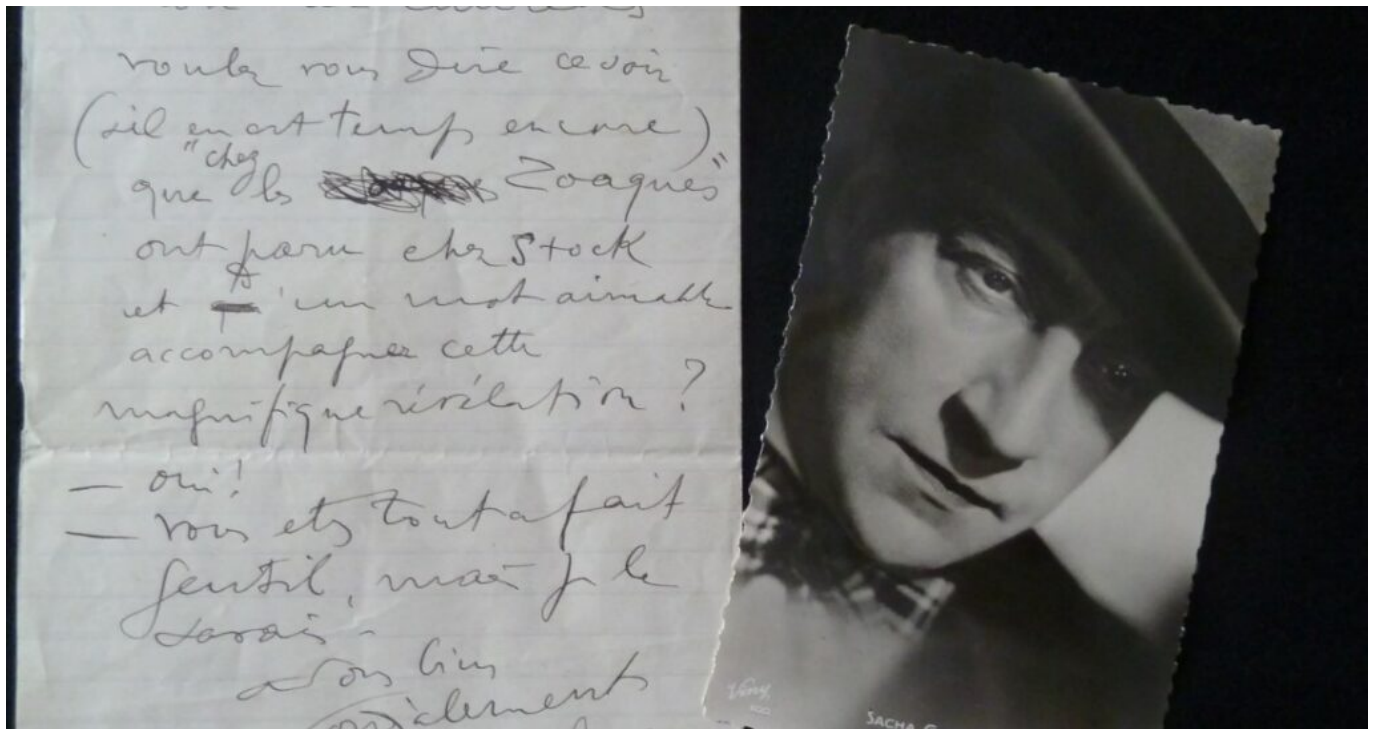 voulez vous dire ce soir
(s'il en est temps encore)
que "chez les Zoaques"
ont paru chez Stock
et d'un mot aimable
accompagner cette
magnifique révélation ?
— oui !
— vous etes tout a fait
gentil, mais je le
savais -
a vous bien
cordialement
Viny
SACHA